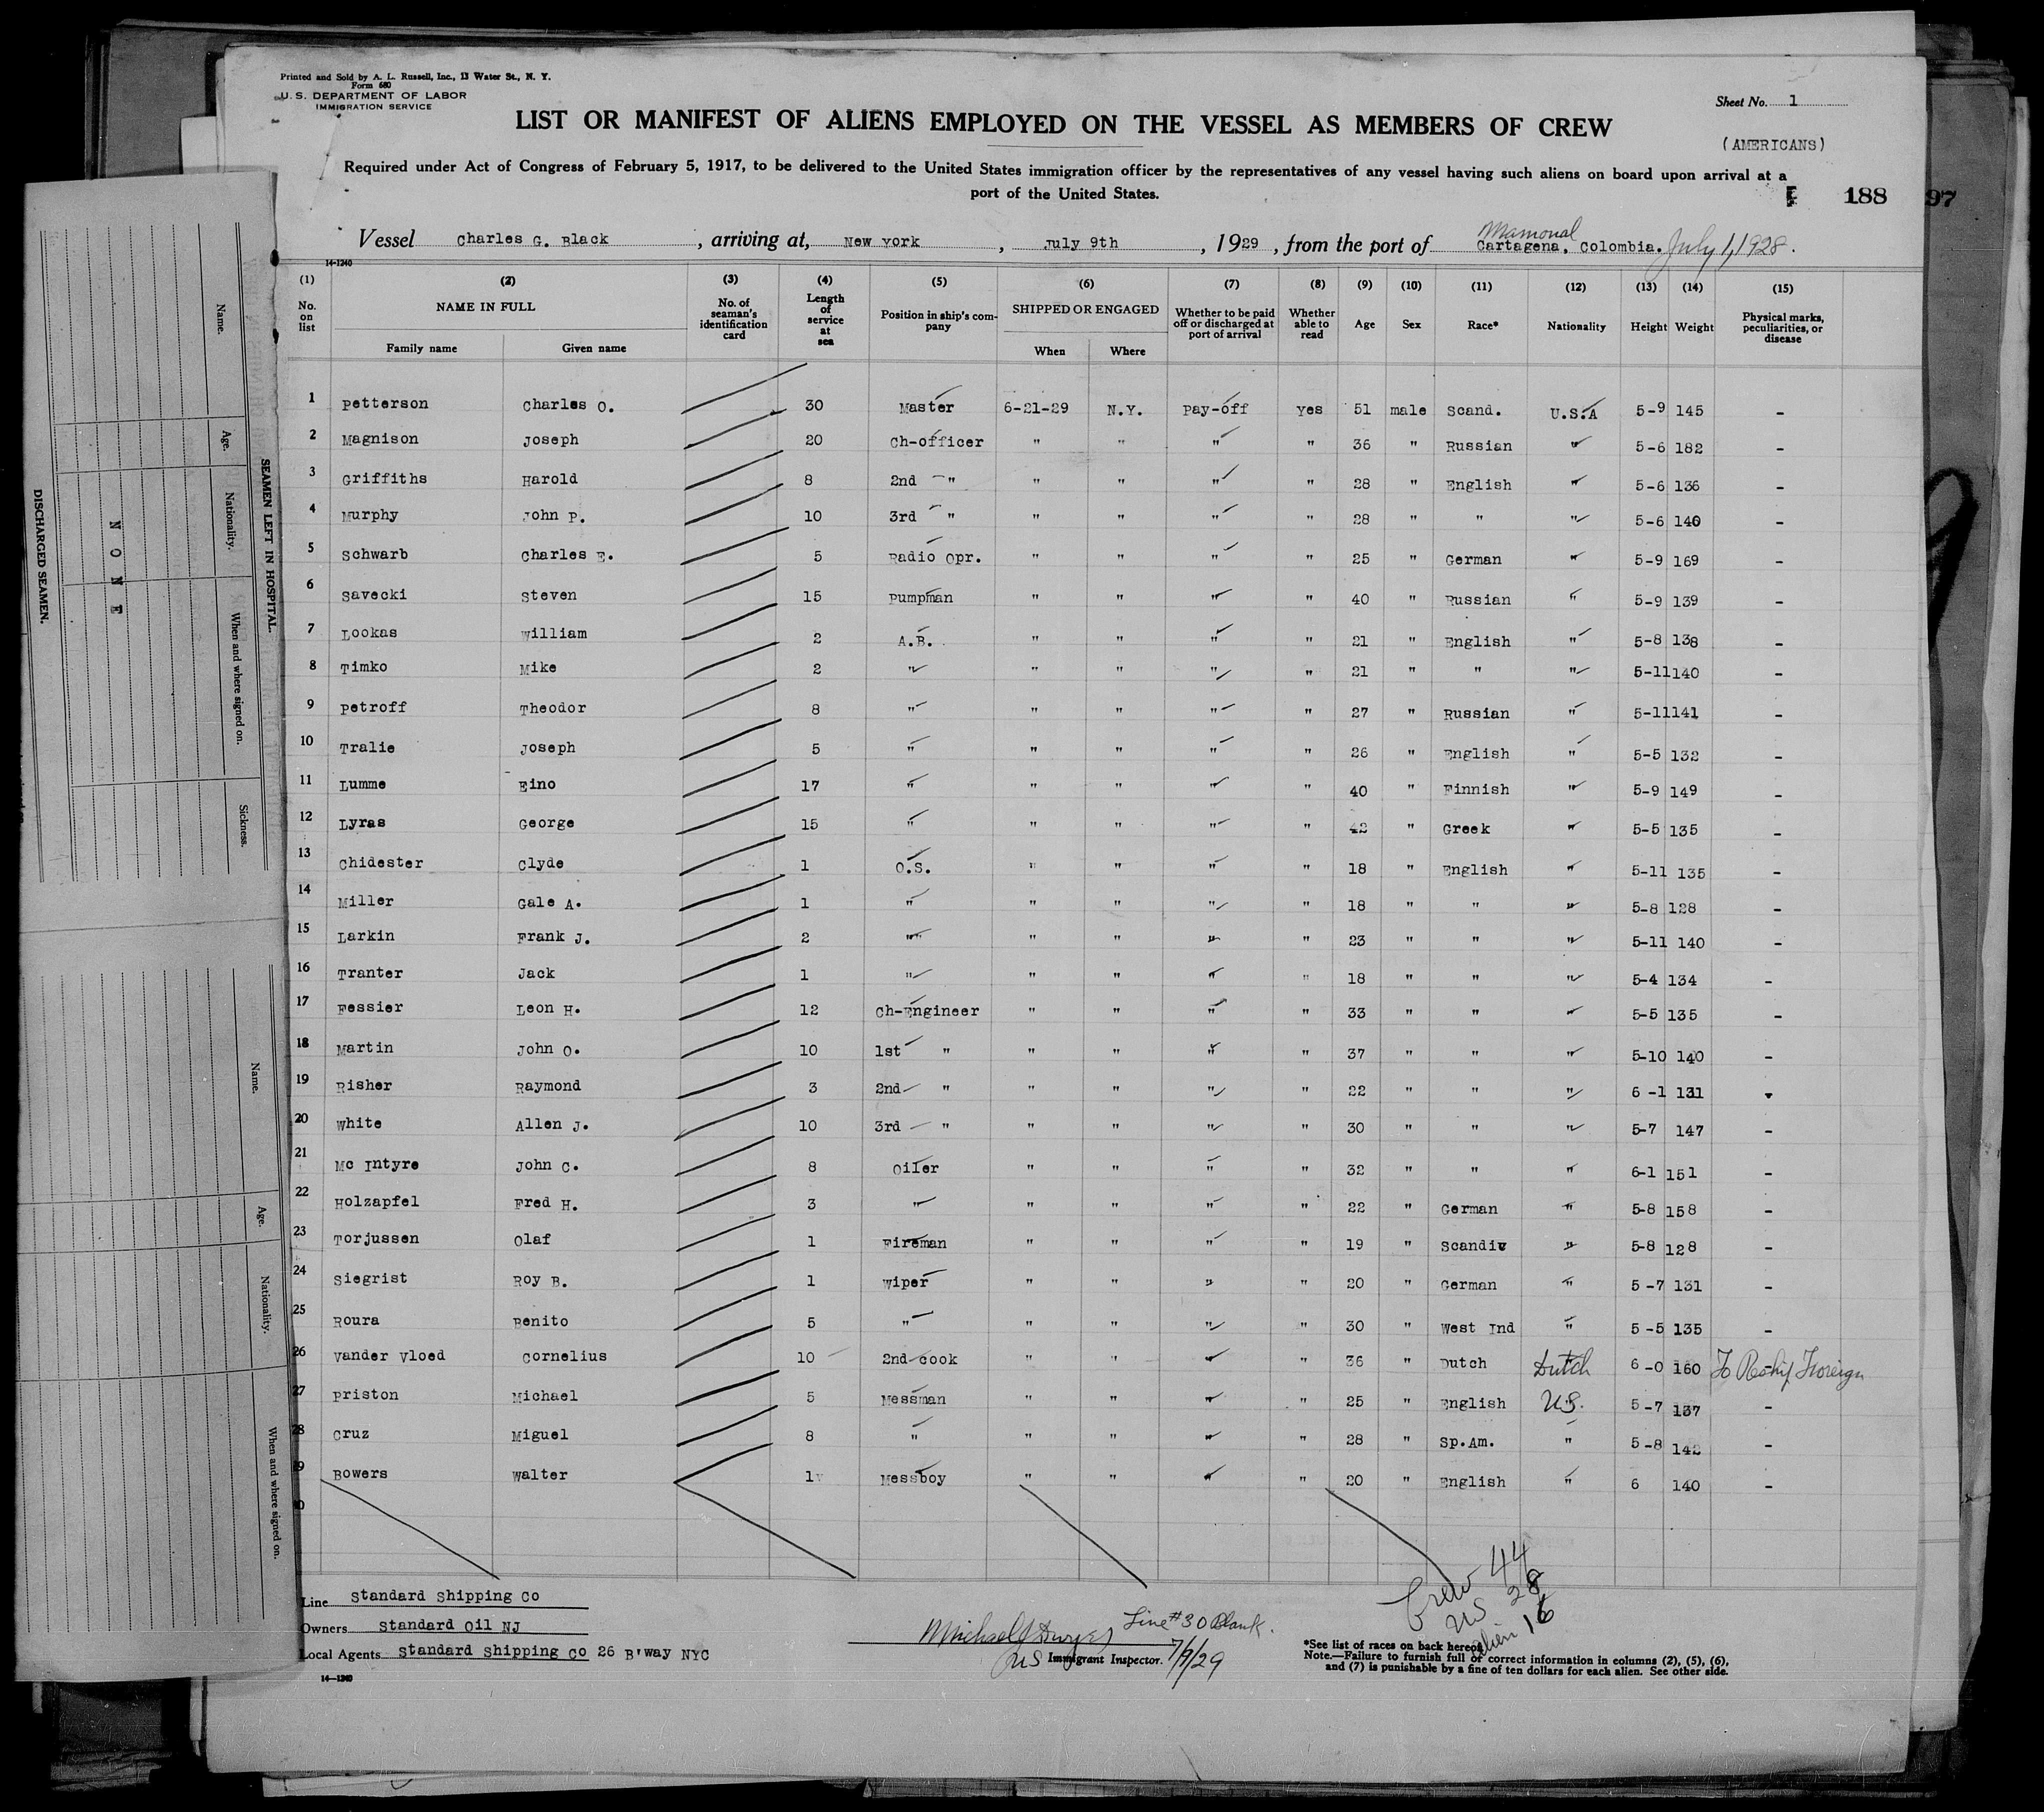 Printed and Sold by A. L. Russell, Inc., 13 Water St., N. Y.
Form 680
U. S. DEPARTMENT OF LABOR
IMMIGRATION SERVICE
Sheet No. 1
LIST OR MANIFEST OF ALIENS EMPLOYED ON THE VESSEL AS MEMBERS OF CREW
(AMERICANS)
Required under Act of Congress of February 5, 1917, to be delivered to the United States immigration officer by the representatives of any vessel having such aliens on board upon arrival at a
port of the United States.
188
97
Mamonal
Vessel Charles G. Black, arriving at, New York, July 9th, 1929, from the port of Cartagena, Colombia. July 1, 1928.
14-1240
(1) (2) (3) (4) (5) (6) (7) (8) (9) (10) (11) (12) (13) (14) (15)
No. on list NAME IN FULL No. of seaman's identification card Length of service at sea Position in ship's company SHIPPED OR ENGAGED Whether to be paid off or discharged at port of arrival Whether able to read Age Sex Race* Nationality Height Weight Physical marks, peculiarities, or disease
Family name Given name When Where
1 Petterson Charles O. 30 Master 6-21-29 N.Y. Pay-off yes 51 male Scand. U.S.A 5-9 145 -
2 Magnison Joseph 20 Ch-officer " " " " 36 " Russian " 5-6 182 -
3 Griffiths Harold 8 2nd " " " " " 28 " English " 5-6 136 -
4 Murphy John P. 10 3rd " " " " " 28 " " " 5-6 140 -
5 Schwarb Charles E. 5 Radio Opr. " " " " 25 " German " 5-9 169 -
6 Savecki Steven 15 Pumpman " " " " 40 " Russian " 5-9 139 -
7 Lookas William 2 A.B. " " " " 21 " English " 5-8 138 -
8 Timko Mike 2 " " " " " 21 " " " 5-11 140 -
9 Petroff Theodor 8 " " " " " 27 " Russian " 5-11 141 -
10 Tralie Joseph 5 " " " " " 26 " English " 5-5 132 -
11 Lumme Eino 17 " " " " " 40 " Finnish " 5-9 149 -
12 Lyras George 15 " " " " " 42 " Greek " 5-5 135 -
13 Chidester Clyde 1 O.S. " " " " 18 " English " 5-11 135 -
14 Miller Gale A. 1 " " " " " 18 " " " 5-8 128 -
15 Larkin Frank J. 2 " " " " " 23 " " " 5-11 140 -
16 Tranter Jack 1 " " " " " 18 " " " 5-4 134 -
17 Fessier Leon H. 12 Ch-Engineer " " " " 33 " " " 5-5 135 -
18 Martin John O. 10 1st " " " " " 37 " " " 5-10 140 -
19 Risher Raymond 3 2nd " " " " " 22 " " " 6-1 131 -
20 White Allen J. 10 3rd " " " " " 30 " " " 5-7 147 -
21 Mc Intyre John C. 8 Oiler " " " " 32 " " " 6-1 151 -
22 Holzapfel Fred H. 3 " " " " " 22 " German " 5-8 158 -
23 Torjussen Olaf 1 Fireman " " " " 19 " Scandiv " 5-8 128 -
24 Siegrist Roy B. 1 Wiper " " " " 20 " German " 5-7 131 -
25 Roura Benito 5 " " " " " 30 " West Ind " 5-5 135 -
26 Vander Vloed Cornelius 10 2nd cook " " " " 36 " Dutch Dutch 6-0 160 To Reship Foreign
27 Priston Michael 5 Messman " " " " 25 " English US. 5-7 137 -
28 Cruz Miguel 8 " " " " " 28 " Sp.Am. " 5-8 142 -
29 Bowers Walter 1 Messboy " " " " 20 " English " 6 140 -
30
Crew 44
US 28
alien 16
Line Standard Shipping Co
Owners Standard Oil NJ
Local Agents Standard Shipping Co 26 B'way NYC
14-1240
Michael J Dwyer Line #30 Blank.
US Immigrant Inspector. 7/9/29
*See list of races on back hereof.
Note.—Failure to furnish full or correct information in columns (2), (5), (6),
and (7) is punishable by a fine of ten dollars for each alien. See other side.
DISCHARGED SEAMEN.
NONE
SEAMEN LEFT IN HOSPITAL.
Name.
Age.
Nationality.
When and where signed on.
Sickness.
Name.
Age.
Nationality.
When and where signed on.